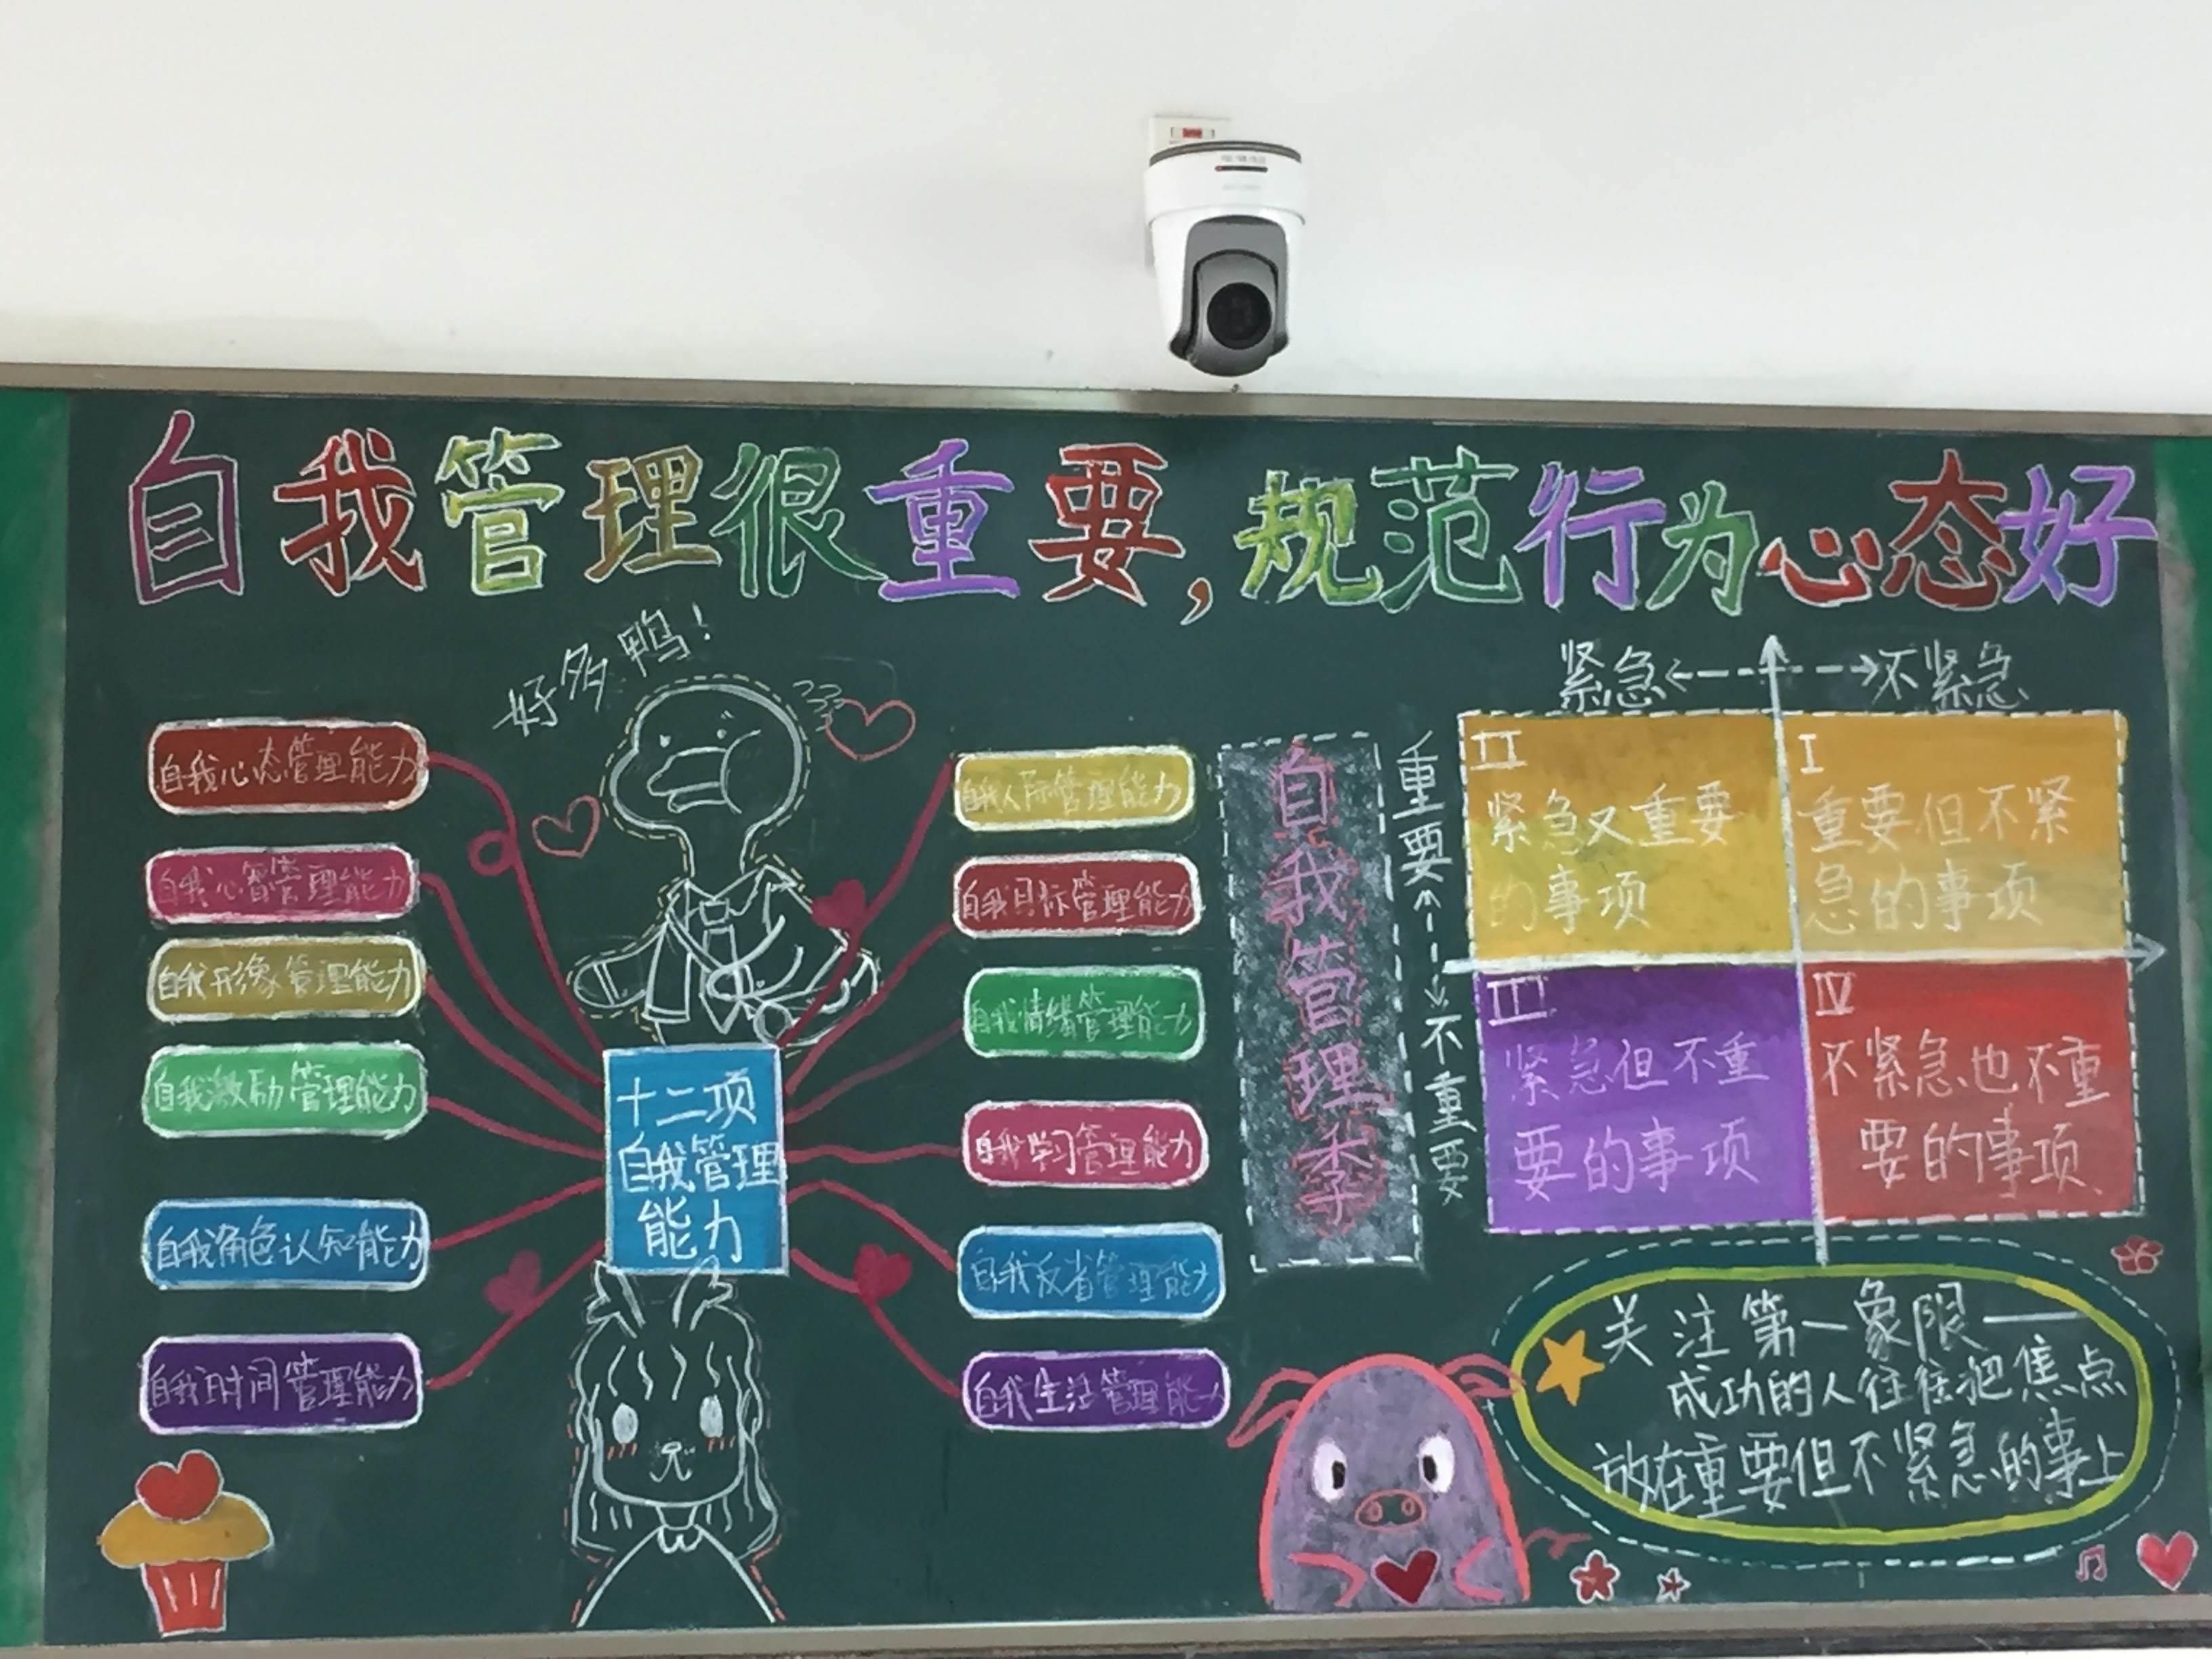 自我管理很重要,规范行为心态好
好多鸭!
自我心态管理能力
自我心智管理能力
自我形象管理能力
自我激励管理能力
自我角色认知能力
自我时间管理能力
十二项
自我管理
能力
自我人际管理能力
自我目标管理能力
自我情绪管理能力
自我学习管理能力
自我反省管理能力
自我生活管理能力
自我管理季
紧急
不紧急
重要
不重要
II
紧急又重要
的事项
I
重要但不紧
急的事项
III
紧急但不重
要的事项
IV
不紧急也不重
要的事项
关注第一象限——
成功的人往往把焦点
放在重要但不紧急的事上